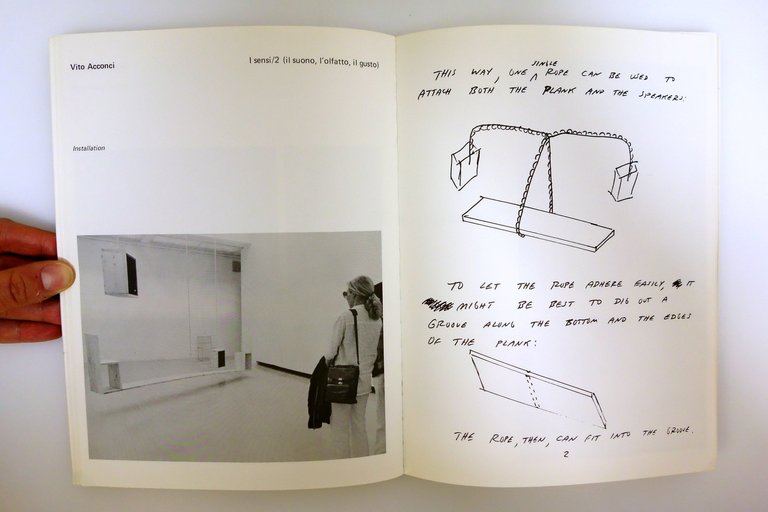 Vito Acconci
I sensi/2 (il suono, l'olfatto, il gusto)
Installation
THIS WAY, ONE SINGLE ROPE CAN BE USED TO
ATTACH BOTH THE PLANK AND THE SPEAKERS:
TO LET THE ROPE ADHERE EASILY, IT
MIGHT BE BEST TO DIG OUT A
GROOVE ALONG THE BOTTOM AND THE EDGES
OF THE PLANK:
THE ROPE, THEN, CAN FIT INTO THE GROOVE.
2